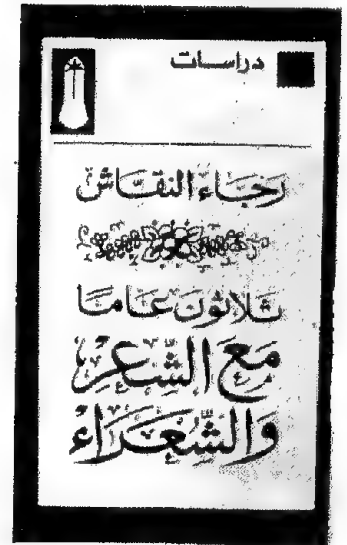 دراسات
رجاء النقاش
ثلاثون عاما
مع الشعر
والشعراء